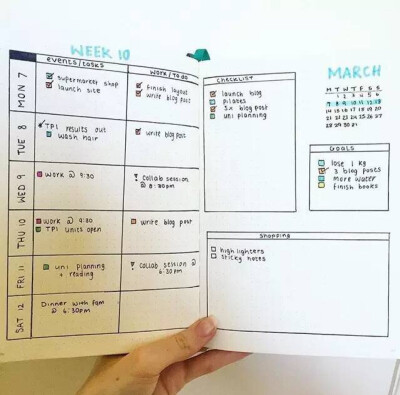 WEEK 10
events/tasks
work/to do
MON 7
supermarket shop
launch site
finish layout
write blog post
TUE 8
TPI results out
wash hair
write blog post
WED 9
work @ 9:30
! collab session
@ 8:30pm
THU 10
work @ 9:30
TPI units open
write blog post
FRI 11
uni planning
+ reading
! collab session @
6:30pm
SAT 12
Dinner with fam
@ 6:30pm
checklist
launch blog
pilates
5x blog post
uni planning
MARCH
M T W T F S S
1 2 3 4 5 6
7 8 9 10 11 12 13
14 15 16 17 18 19 20
21 22 23 24 25 26 27
28 29 30 31
GOALS
lose 1 kg
3 blog posts
more water
finish books
shopping
highlighters
sticky notes